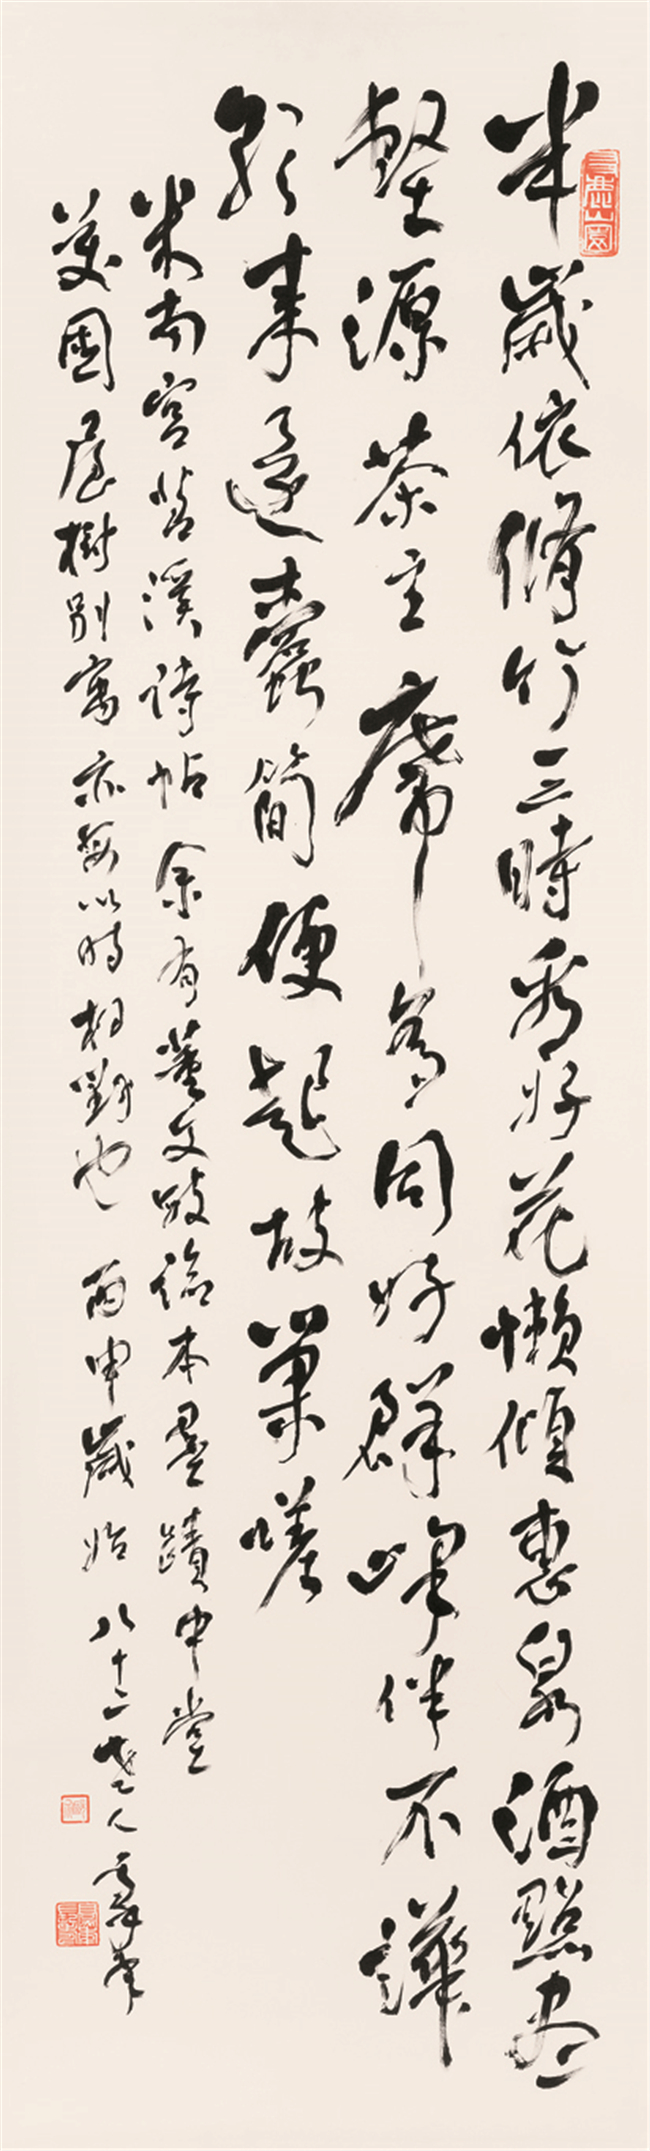 半歲依脩竹三時看好花懶傾惠泉酒點盡
壑源茶主席多同好群峰伴不譁
朝來還蠹簡便起故巢嗟
米南宮苕溪詩帖余有董文敏臨本墨蹟中堂
樹別寓亦每以時相對也 丙申歲始 八十二